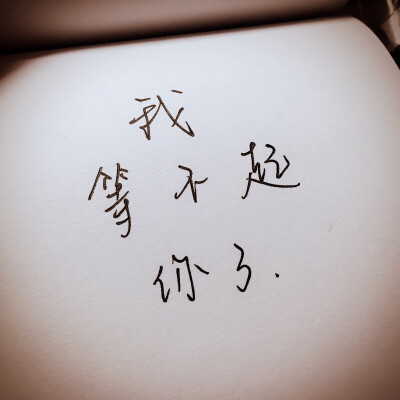 我
等不起
你了.